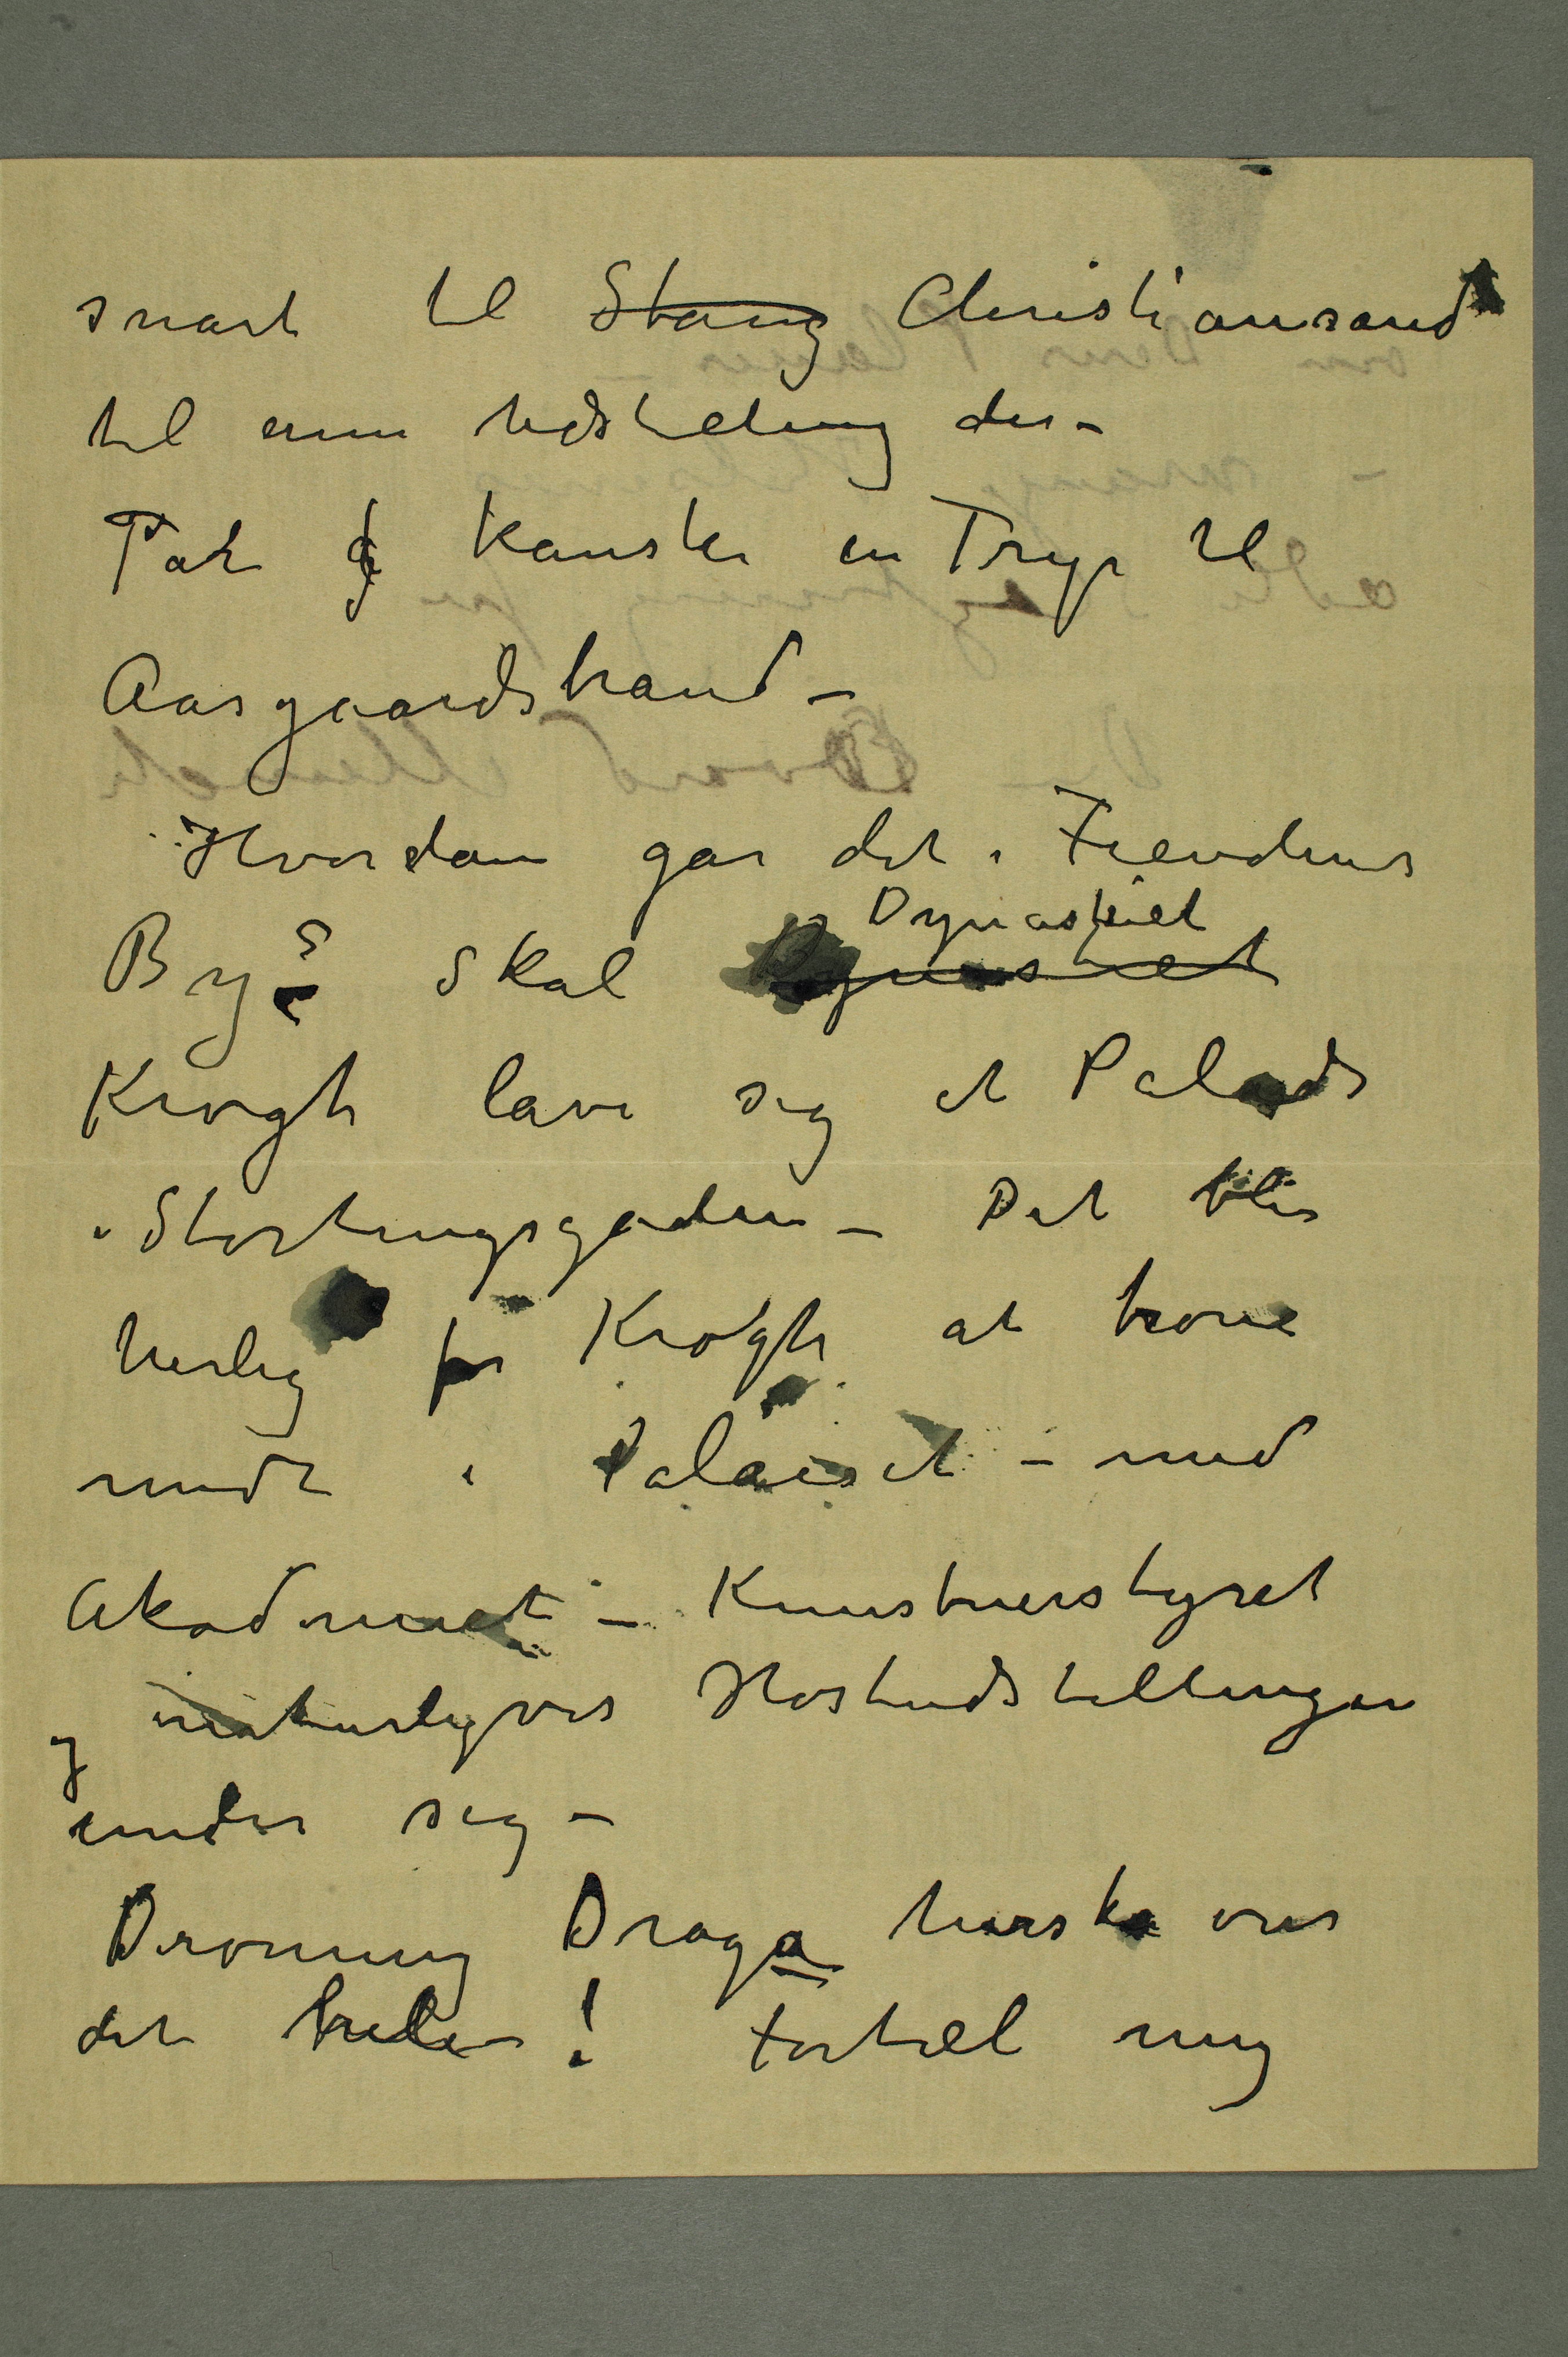 snart til Stang Christiansand
til enn udstilling der –
Tar så kanske en Trip til
Aasgaardstrand –
Hvordan går det i Fiendens
By? Skal Dynastiet
Dynastiet
Krogh lave sig et Palads
i Stortingsgaden – Det blir
herlig for Krogh at trone
midt i Palaiset – med
Akademiet – Kunstnerstyret
og naturligvis Høstudstillingen
under sig –
Dronning Draga herske over
det hele! Fortæl mig